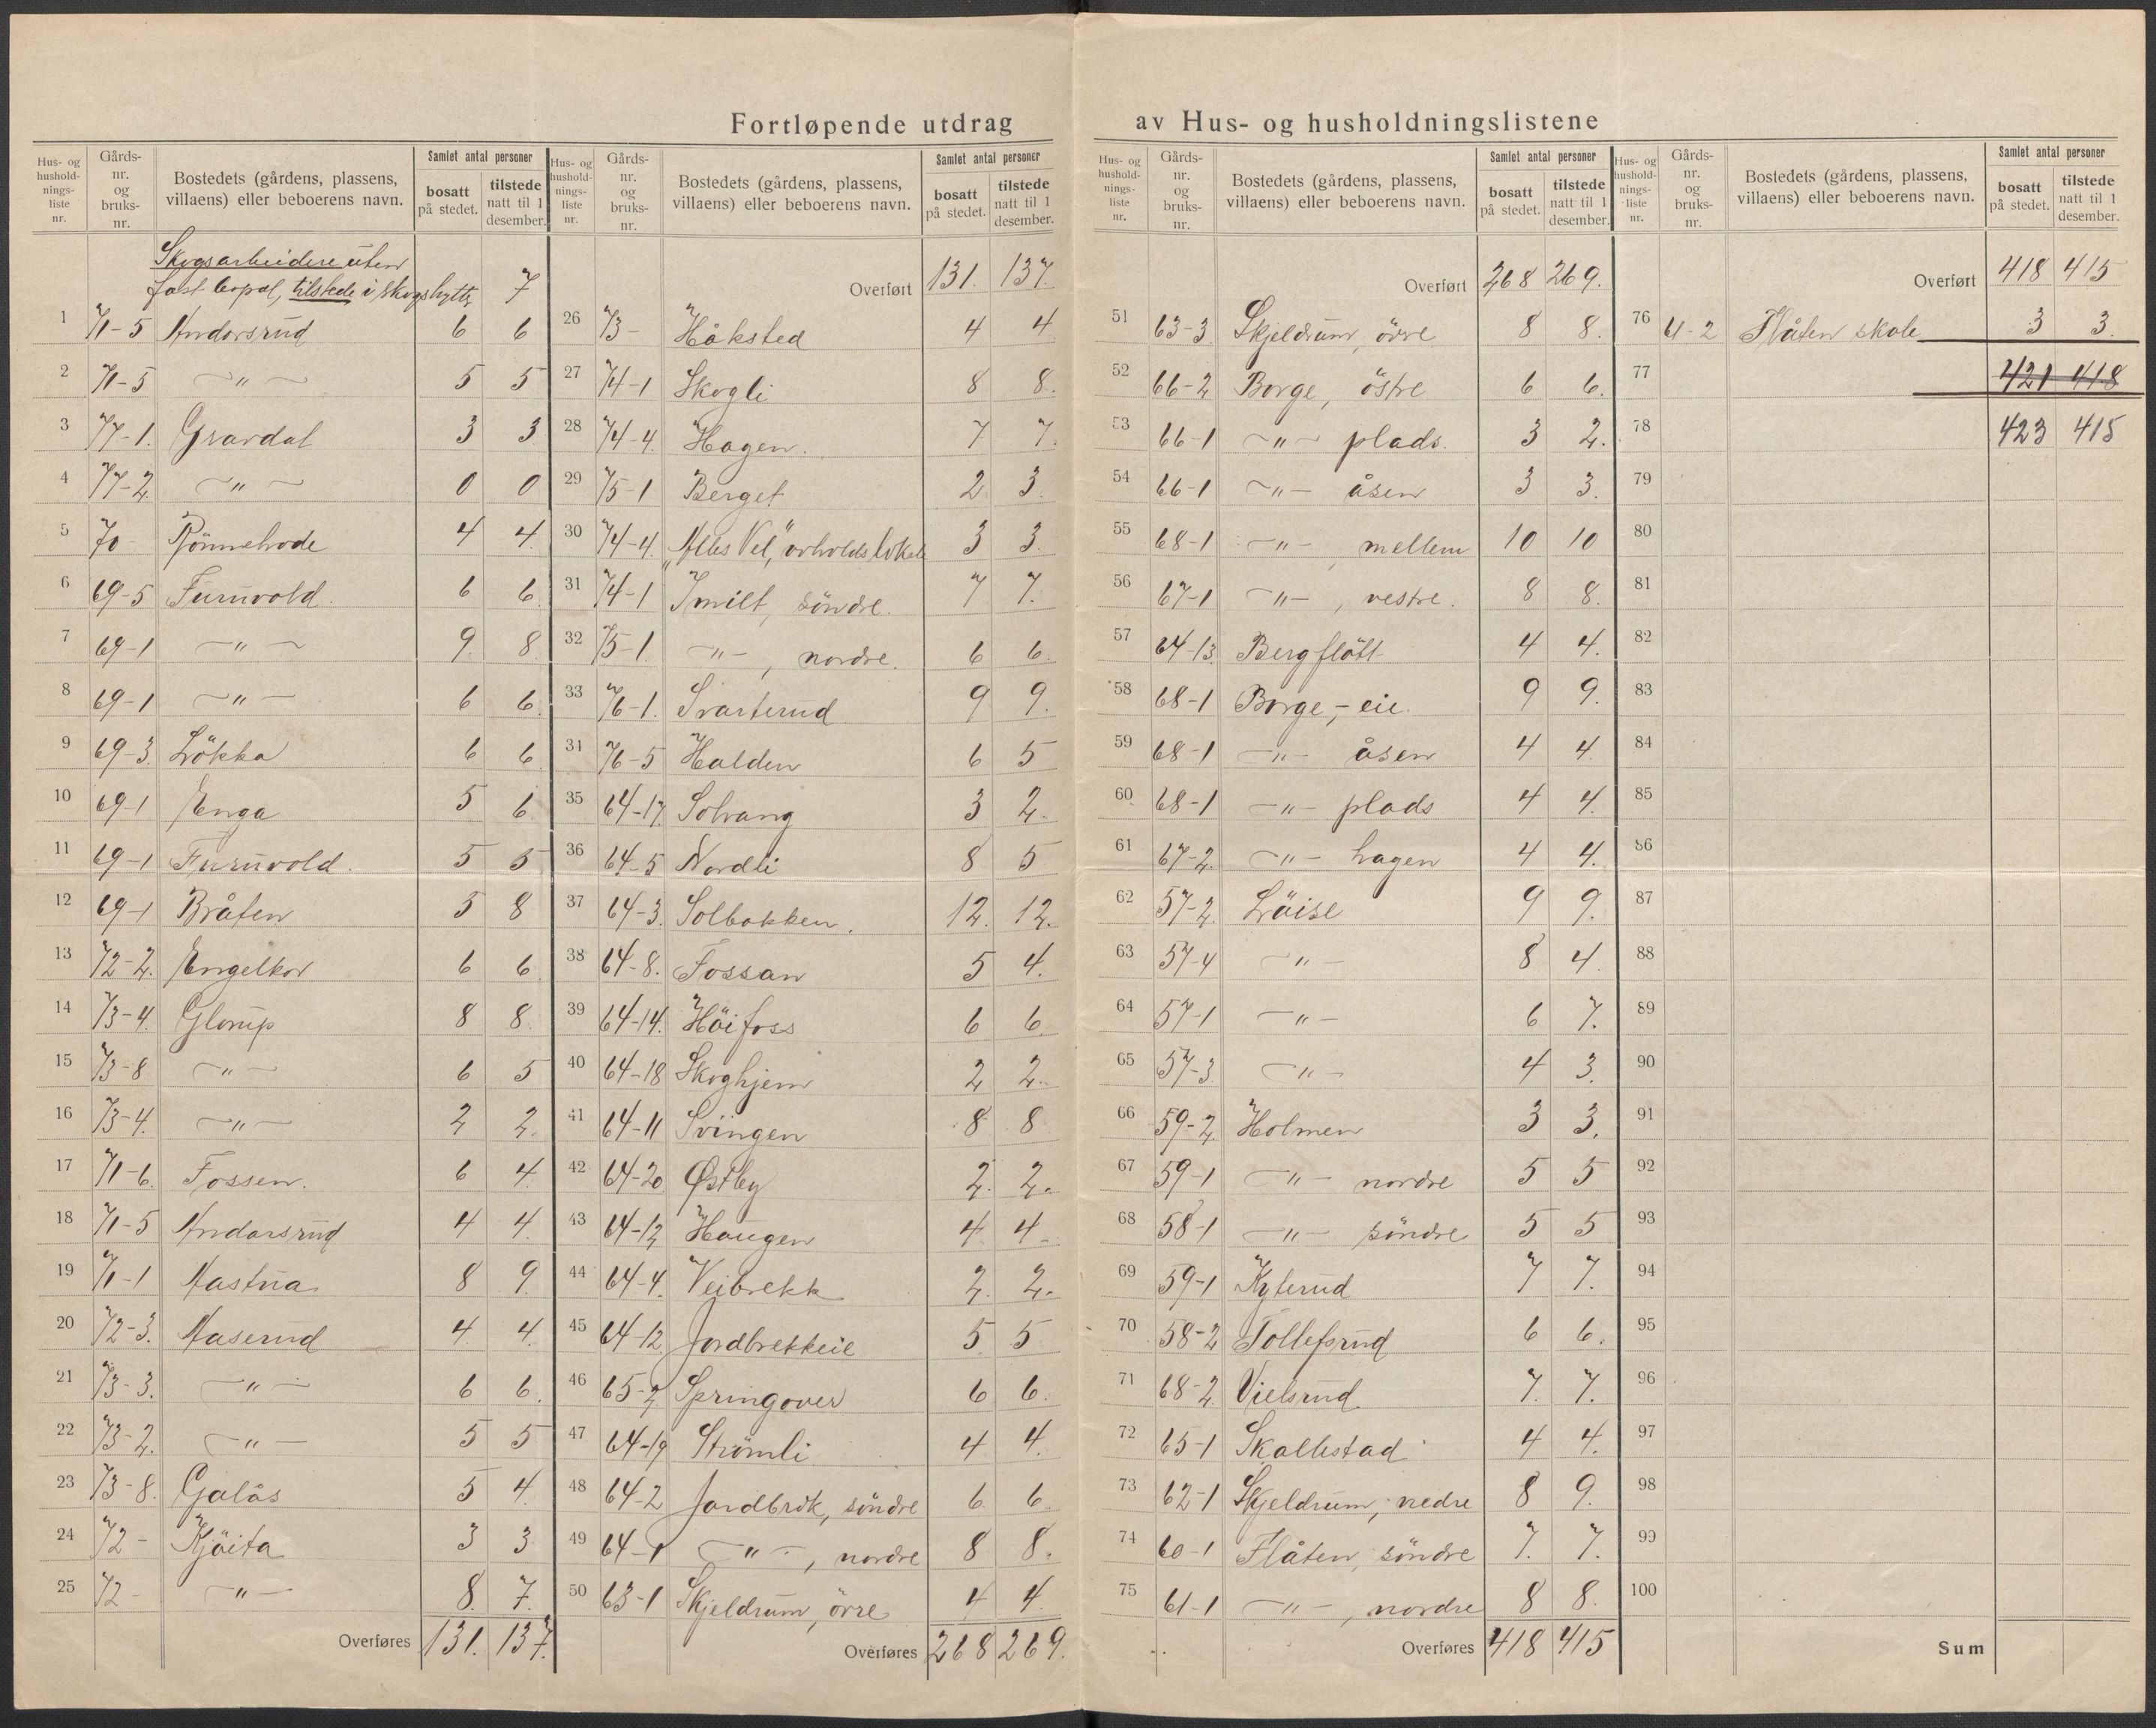 Fortløpende utdrag av Hus- og husholdningslistene
Hus- og husholdnings-liste nr. | Gårds-nr. og bruks-nr. | Bostedets (gårdens, plassens, villaens) eller beboerens navn. | Samlet antal personer | bosatt på stedet. | tilstede natt til 1 desember.
Skogsarbeidere uten
fast bopæl, tilstede i skogshytte 7
1 71-5 Andorsrud 6 6
2 71-5 -"- 5 5
3 77-1. Gravdal 3 3
4 77-2 -"- 0 0
5 70 Rönnehode 4 4
6 69-5 Furuvold. 6 6
7 69-1 -"- 9. 8
8 69-1 -"- 6 6.
9 69-3. Lökka 6 6
10 69-1 Enga 5 6
11 69-1 Furuvold. 5 5
12 69-1 Bråten 5 8
13 72-2. Engelkor 6 6
14 73-4. Glorup 8 8.
15 73-8 -"- 6 5
16 73-4. -"- 2 2.
17 71-6. Fossen. 6 4.
18 71-5 Andorsrud 4 4.
19 71-1 Aastua 8 9.
20 72-3. Aaserud 4. 4.
21 73-3. -"- 6 6.
22 73-2. -"- 5 5
23 73-8. Galås 5 4.
24 72- Kjöita 3 3
25 72- -"- 8. 7.
Overføres 131. 137.
Hus- og husholdnings-liste nr. | Gårds-nr. og bruks-nr. | Bostedets (gårdens, plassens, villaens) eller beboerens navn. | Samlet antal personer | bosatt på stedet. | tilstede natt til 1 desember.
Overført 131. 137.
26 73- Håksted 4 4
27 74-1 Skogli 8 8.
28 74-4. Hagen. 7 7.
29 75-1 Berget 2 3.
30 74-4. "Alles Vel", avholdslokale 3 3.
31 74-1 Smilt, söndre. 7 7.
32 75-1. -"-, nordre. 6 6.
33 76-1. Svarterud 9 9.
34 76-5 Halden 6 5
35 64-17. Solvang 3 2.
36 64-5 Nordli 8 5
37 64-3. Solbakken. 12. 12.
38 64-8. Fossan 5 4.
39 64-14. Höifoss 6 6
40 64-18 Skoghjem 2 2.
41 64-11 Svingen 8 8
42 64-20 Østby 2. 2.
43 64-12 Haugen 4 4.
44 64-4. Veibrekk 2. 2.
45 64-12 Jordbrekkeie 5 5
46 65-2 Springover 6 6.
47 64-19 Strömli 4 4.
48 64-2 Jordbrek, söndre 6 6
49 64-1 -"-, nordre 8 8.
50 63-1 Skjeldrum, övre 4 4.
Overføres 268 269.
Hus- og husholdnings-liste nr. | Gårds-nr. og bruks-nr. | Bostedets (gårdens, plassens, villaens) eller beboerens navn. | Samlet antal personer | bosatt på stedet. | tilstede natt til 1 desember.
Overført 268 269.
51 63-3 Skjeldrum, övre 8 8.
52 66-2 Borge, östre 6 6.
53 66-1 -"- plads. 3 2.
54 66-1 -"- åsen 3 3.
55 68-1 -"- mellem 10 10
56 67-1 -"-, vestre. 8 8.
57 64-13. Bergflött 4 4.
58 68-1 Borge,-eie. 9 9.
59 68-1 -"- åsen 4 4
60 68-1 -"- plads 4 4.
61 67-2. -"- hagen 4 4.
62 57-2. Löise 9 9.
63 57-4 -"- 8 4
64 57-1 -"- 6 7.
65 57-3 -"- 4 3.
66 59-2. Holmen 3 3.
67 59-1 -"- nordre 5 5
68 58-1 -"- söndre 5 5
69 59-1 Kyterud 7 7.
70 58-2 Tollefsrud 6 6.
71 68-2. Vielsrud. 7. 7.
72 65-1 Skallestad 4 4.
73 62-1 Skjeldrum, nedre 8 9.
74 60-1 Flåten, söndre 7. 7.
75 61-1 -"-, nordre 8 8.
Overføres 418 415
Hus- og husholdnings-liste nr. | Gårds-nr. og bruks-nr. | Bostedets (gårdens, plassens, villaens) eller beboerens navn. | Samlet antal personer | bosatt på stedet. | tilstede natt til 1 desember.
Overført 418 415
76 61-2 Flåten skole 3 3.
77 421 418
78 423 415
79
80
81
82
83
84
85
86
87
88
89
90
91
92
93
94
95
96
97
98
99
100
Sum